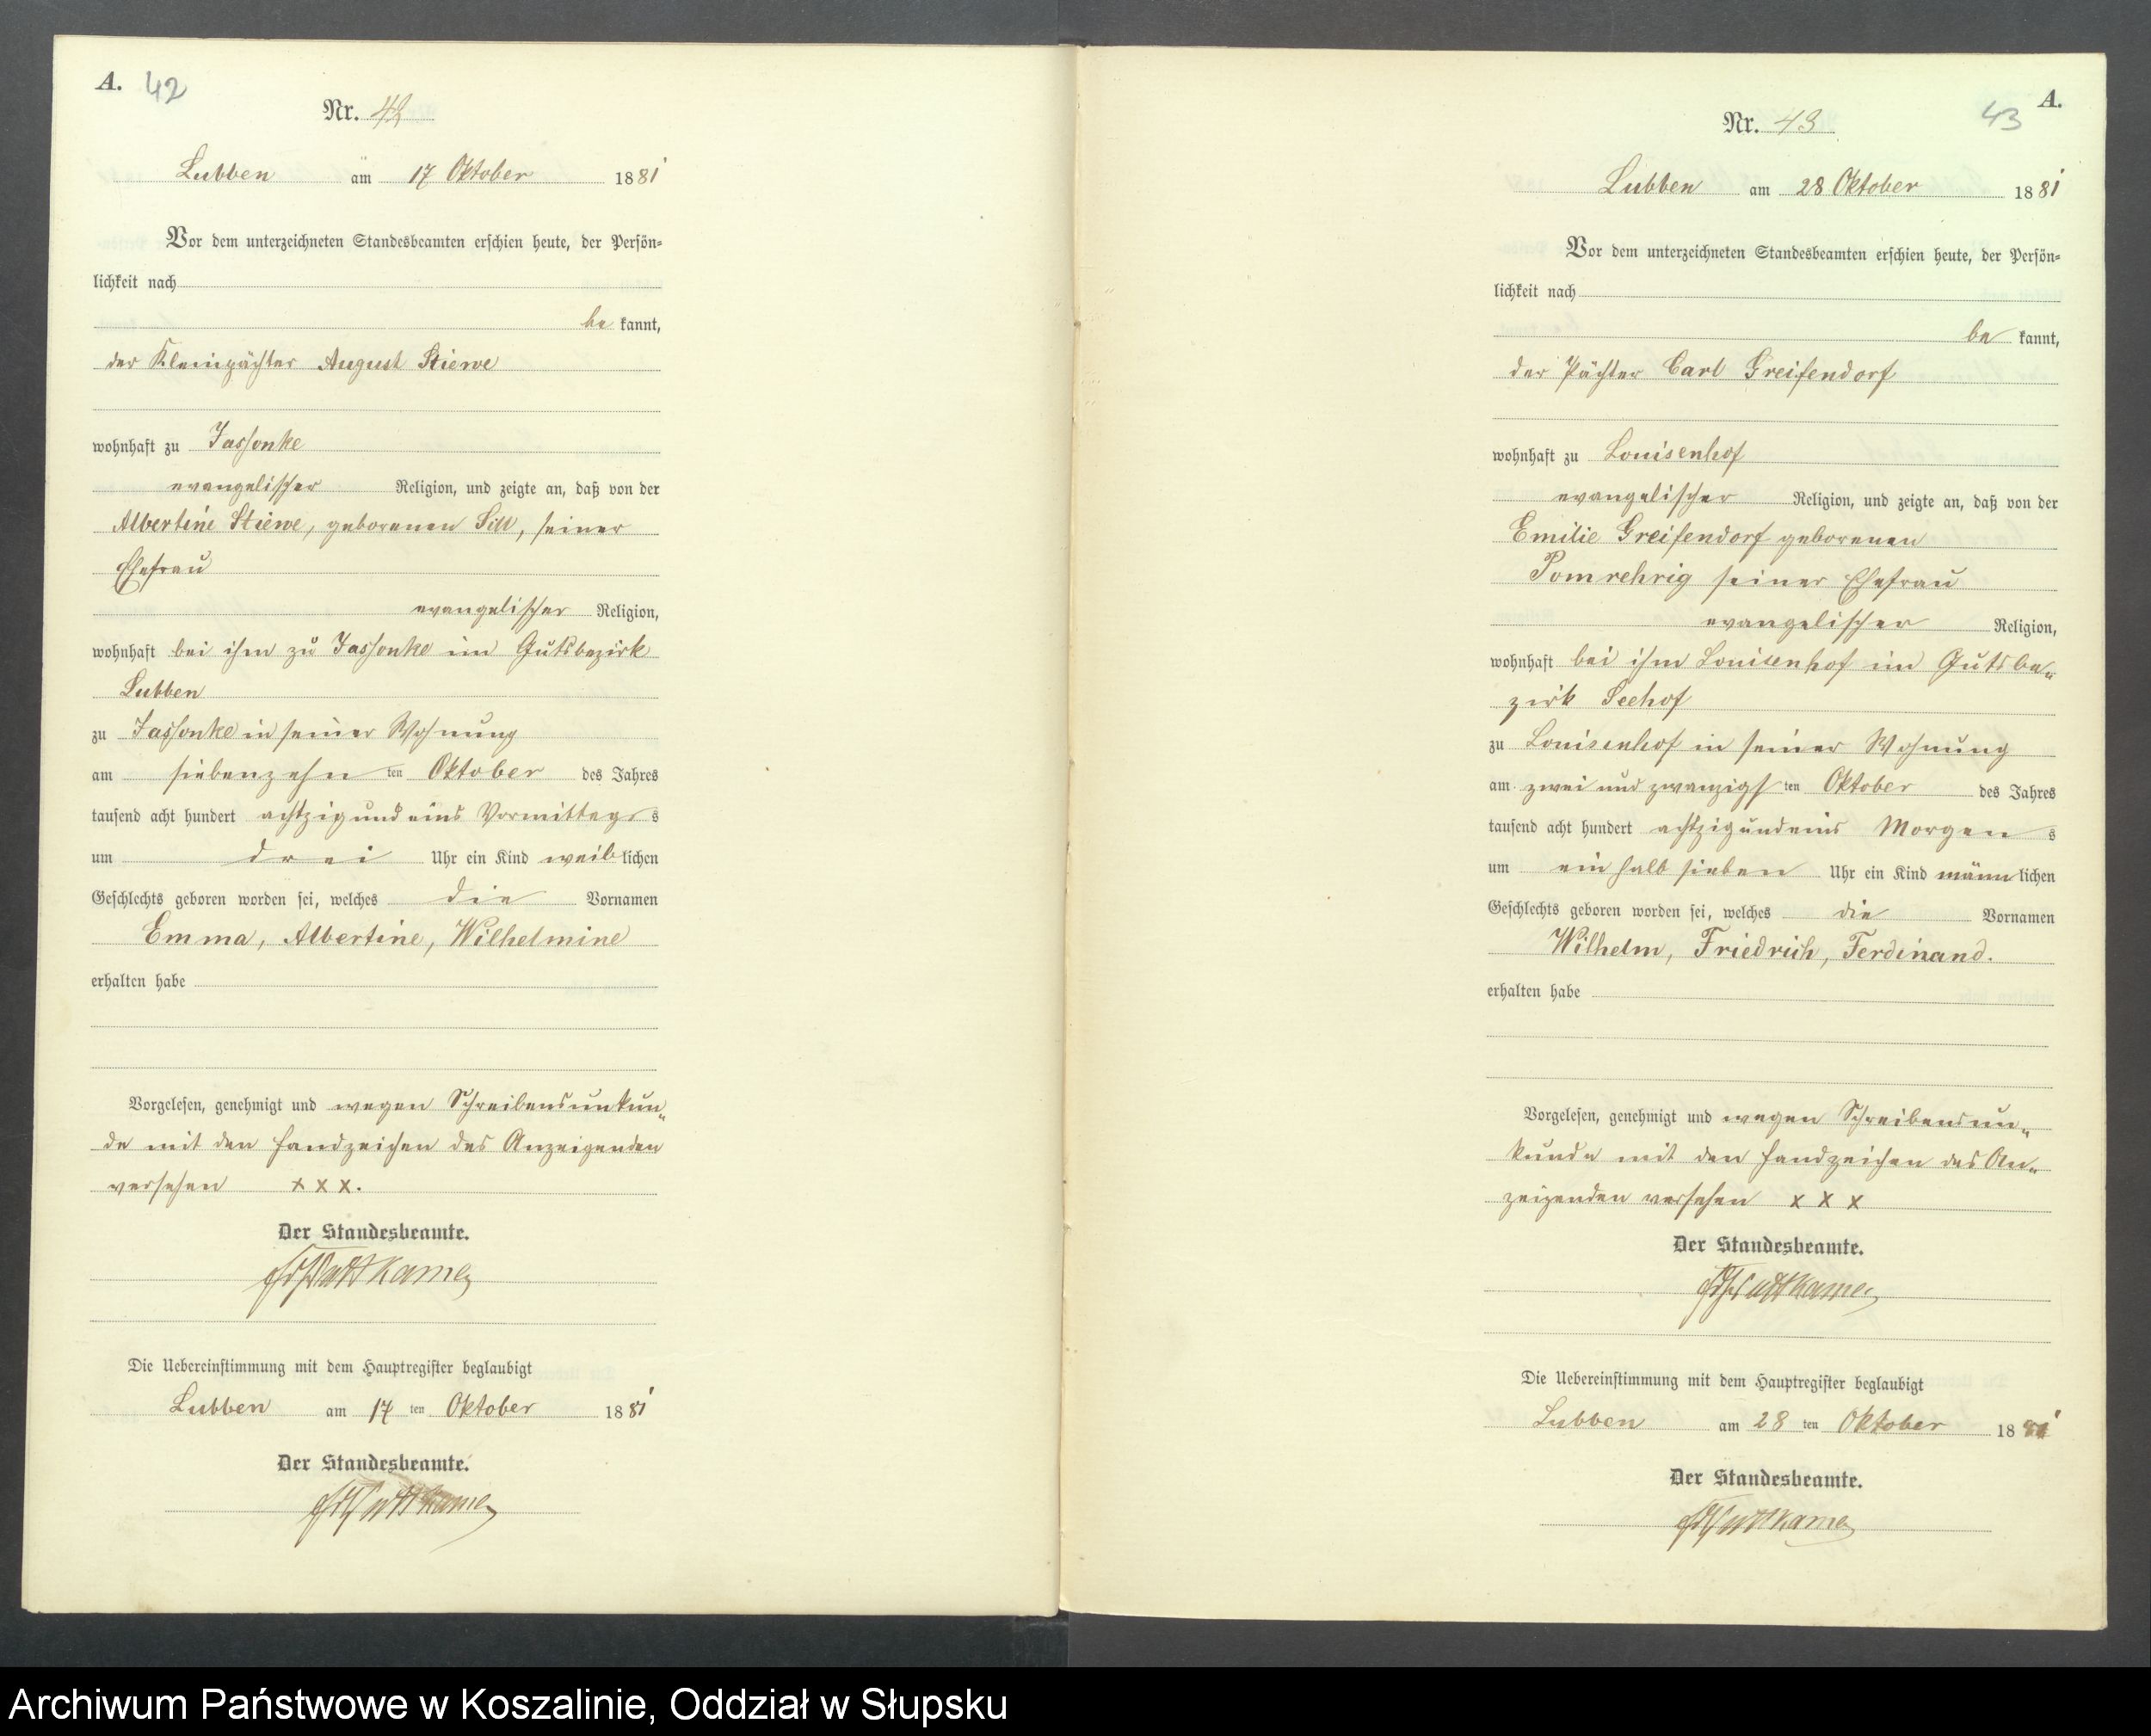 A. 42
Nr. 42
Lubben am 17 Oktober 1881
Vor dem unterzeichneten Standesbeamten erschien heute, der Persön=
lichkeit nach
be kannt,
der Kleinpächter August Stiewe
wohnhaft zu Jassonke
evangelischer Religion, und zeigte an, daß von der
Albertine Stiewe, geborenen Sill, seiner
Ehefrau
evangelischer Religion,
wohnhaft bei ihm zu Jassonke im Gutsbezirk
Lubben
zu Jassonke in seiner Wohnung
am siebenzehn ten Oktober des Jahres
tausend acht hundert achtzig und eins Vormittags
um drei Uhr ein Kind weiblichen
Geschlechts geboren worden sei, welches die Vornamen
Emma, Albertine, Wilhelmine
erhalten habe
Vorgelesen, genehmigt und wegen Schreibensunkun„
de mit den Handzeichen des Anzeigenden
versehen x x x.
Der Standesbeamte.
Die Uebereinstimmung mit dem Hauptregister beglaubigt
Lubben am 17 ten Oktober 1881
Der Standesbeamte.
A.
43
Nr. 43
Lubben am 28 Oktober 1881
Vor dem unterzeichneten Standesbeamten erschien heute, der Persön=
lichkeit nach
be kannt,
der Pächter Carl Greifendorf
wohnhaft zu Louisenhof
evangelischer Religion, und zeigte an, daß von der
Emilie Greifendorf geborenen
Pomrehrig seiner Ehefrau
evangelischer Religion,
wohnhaft bei ihm Louisenhof im Gutsbe„
zirk Seehof
zu Louisenhof in seiner Wohnung
am zwei und zwanzigsten Oktober des Jahres
tausend acht hundert achtzig und eins Morgens
um ein halb sieben Uhr ein Kind männlichen
Geschlechts geboren worden sei, welches die Vornamen
Wilhelm, Friedrich, Ferdinand.
erhalten habe
Vorgelesen, genehmigt und wegen Schreibensun„
kunde mit den Handzeichen des An„
zeigenden versehen x x x
Der Standesbeamte.
Die Uebereinstimmung mit dem Hauptregister beglaubigt
Lubben am 28 ten Oktober 1881
Der Standesbeamte.
Archiwum Państwowe w Koszalinie, Oddział w Słupsku